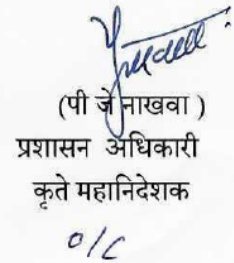 (पी जे नाखवा )
प्रशासन अधिकारी
कृते महानिदेशक
O/C